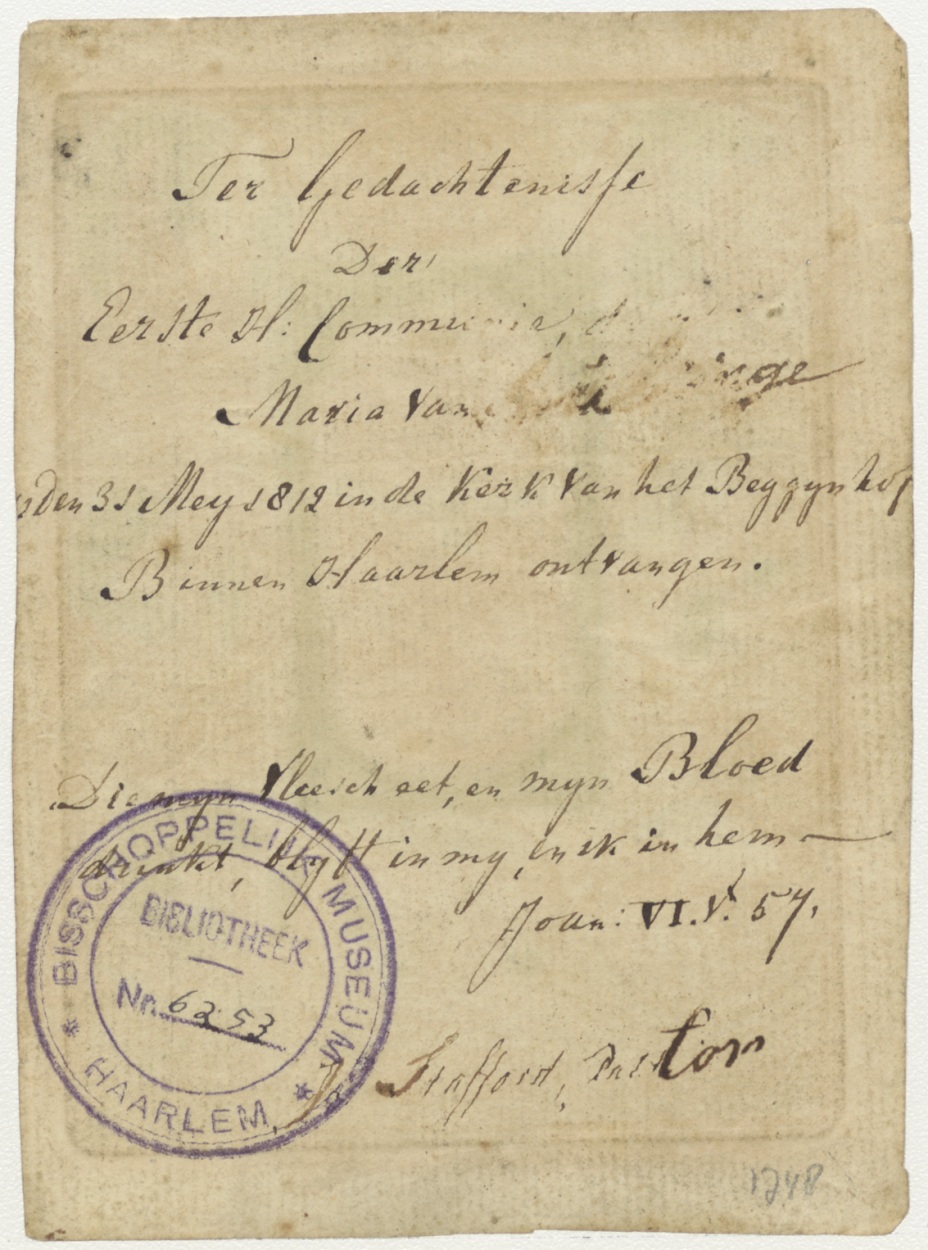 Ter Gedachtenisse
Der
Eerste H: Communie,
Maria Van
den 31 Mey 1812 in de Kerk Van het Beggynhof
Binnen Haarlem ontvangen.
Die myn Vleesch eet, en myn Bloed
drinkt, blyft in my, en ik in hem —
Joan: VI. V. 57.
Stafford, Pastor
BISSCHOPPELIJK MUSEUM
BIBLIOTHEEK
Nr. 6253
* HAARLEM *
1748